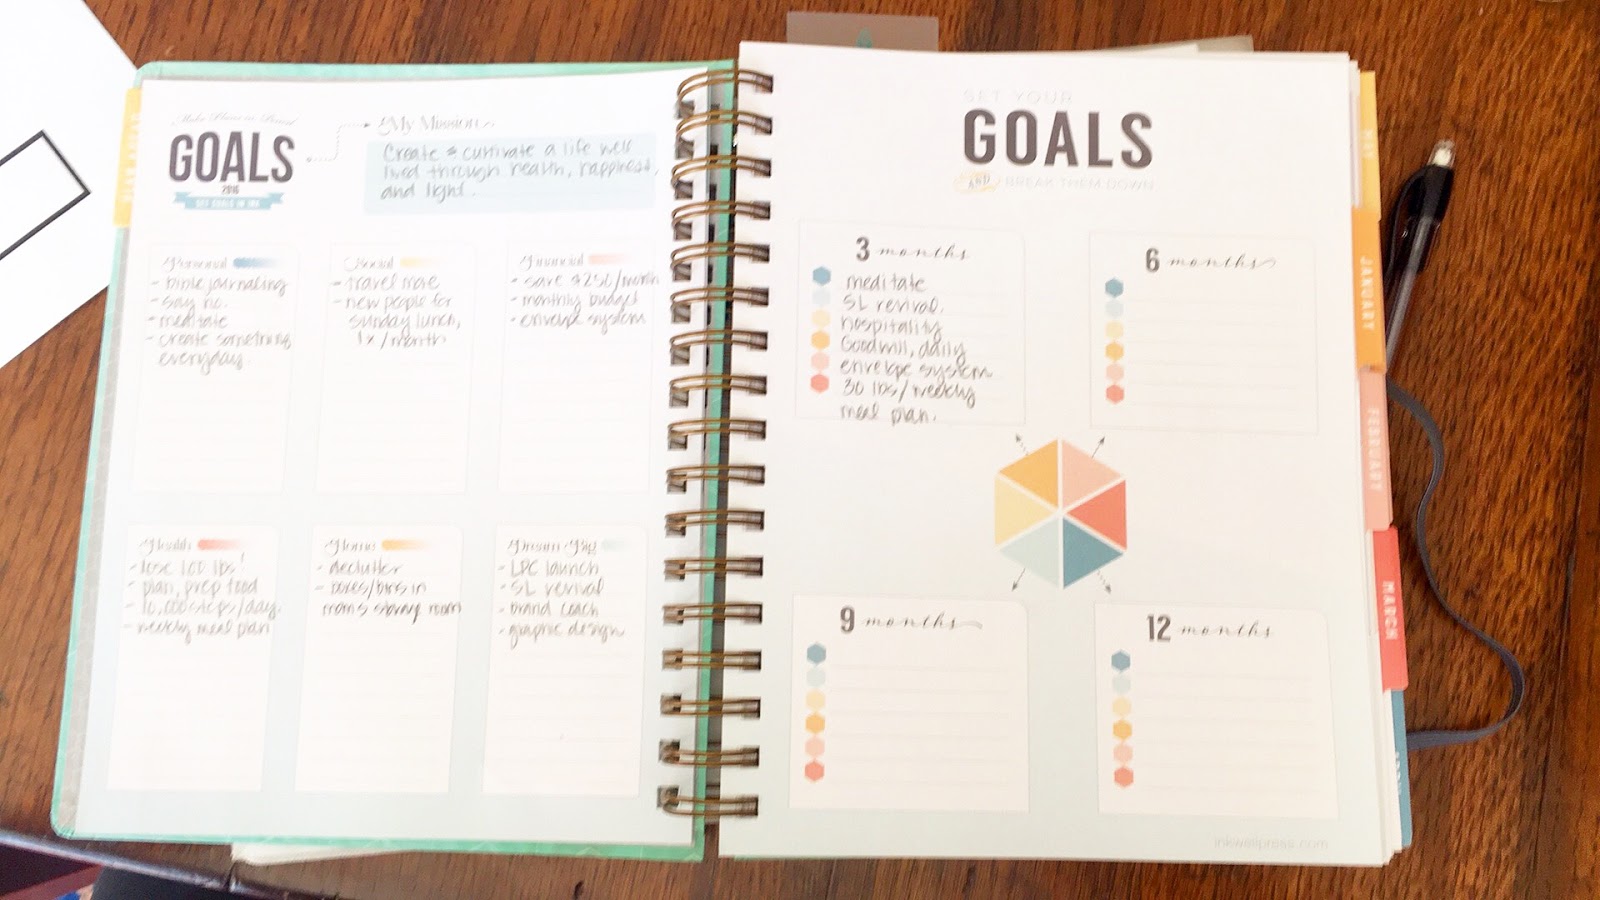 Make Plans in Pencil
GOALS
2016
SET GOALS IN INK
My Mission
Create & cultivate a life well
lived through health, happiness,
and light.
Personal
- bible journaling
- say no.
- meditate
- create something
everyday.
Social
- travel more
- new people for
sunday lunch,
1x/month
Financial
- save $250/month
- monthly budget
- envelope system
Health
- lose 100 lbs!
- plan, prep food
- 10,000 steps/day.
- weekly meal plan
Home
- declutter
- boxes/bins in
moms storage room
Dream Big
- LPC launch
- SL revival
- brand coach
- graphic design
SET YOUR
GOALS
AND BREAK THEM DOWN
3 months
meditate
SL revival.
hospitality
Goodwill, daily
envelope system
30 lbs/weekly
meal plan.
6 months
9 months
12 months
inkwellpress.com
MAY
JANUARY
FEBRUARY
MARCH